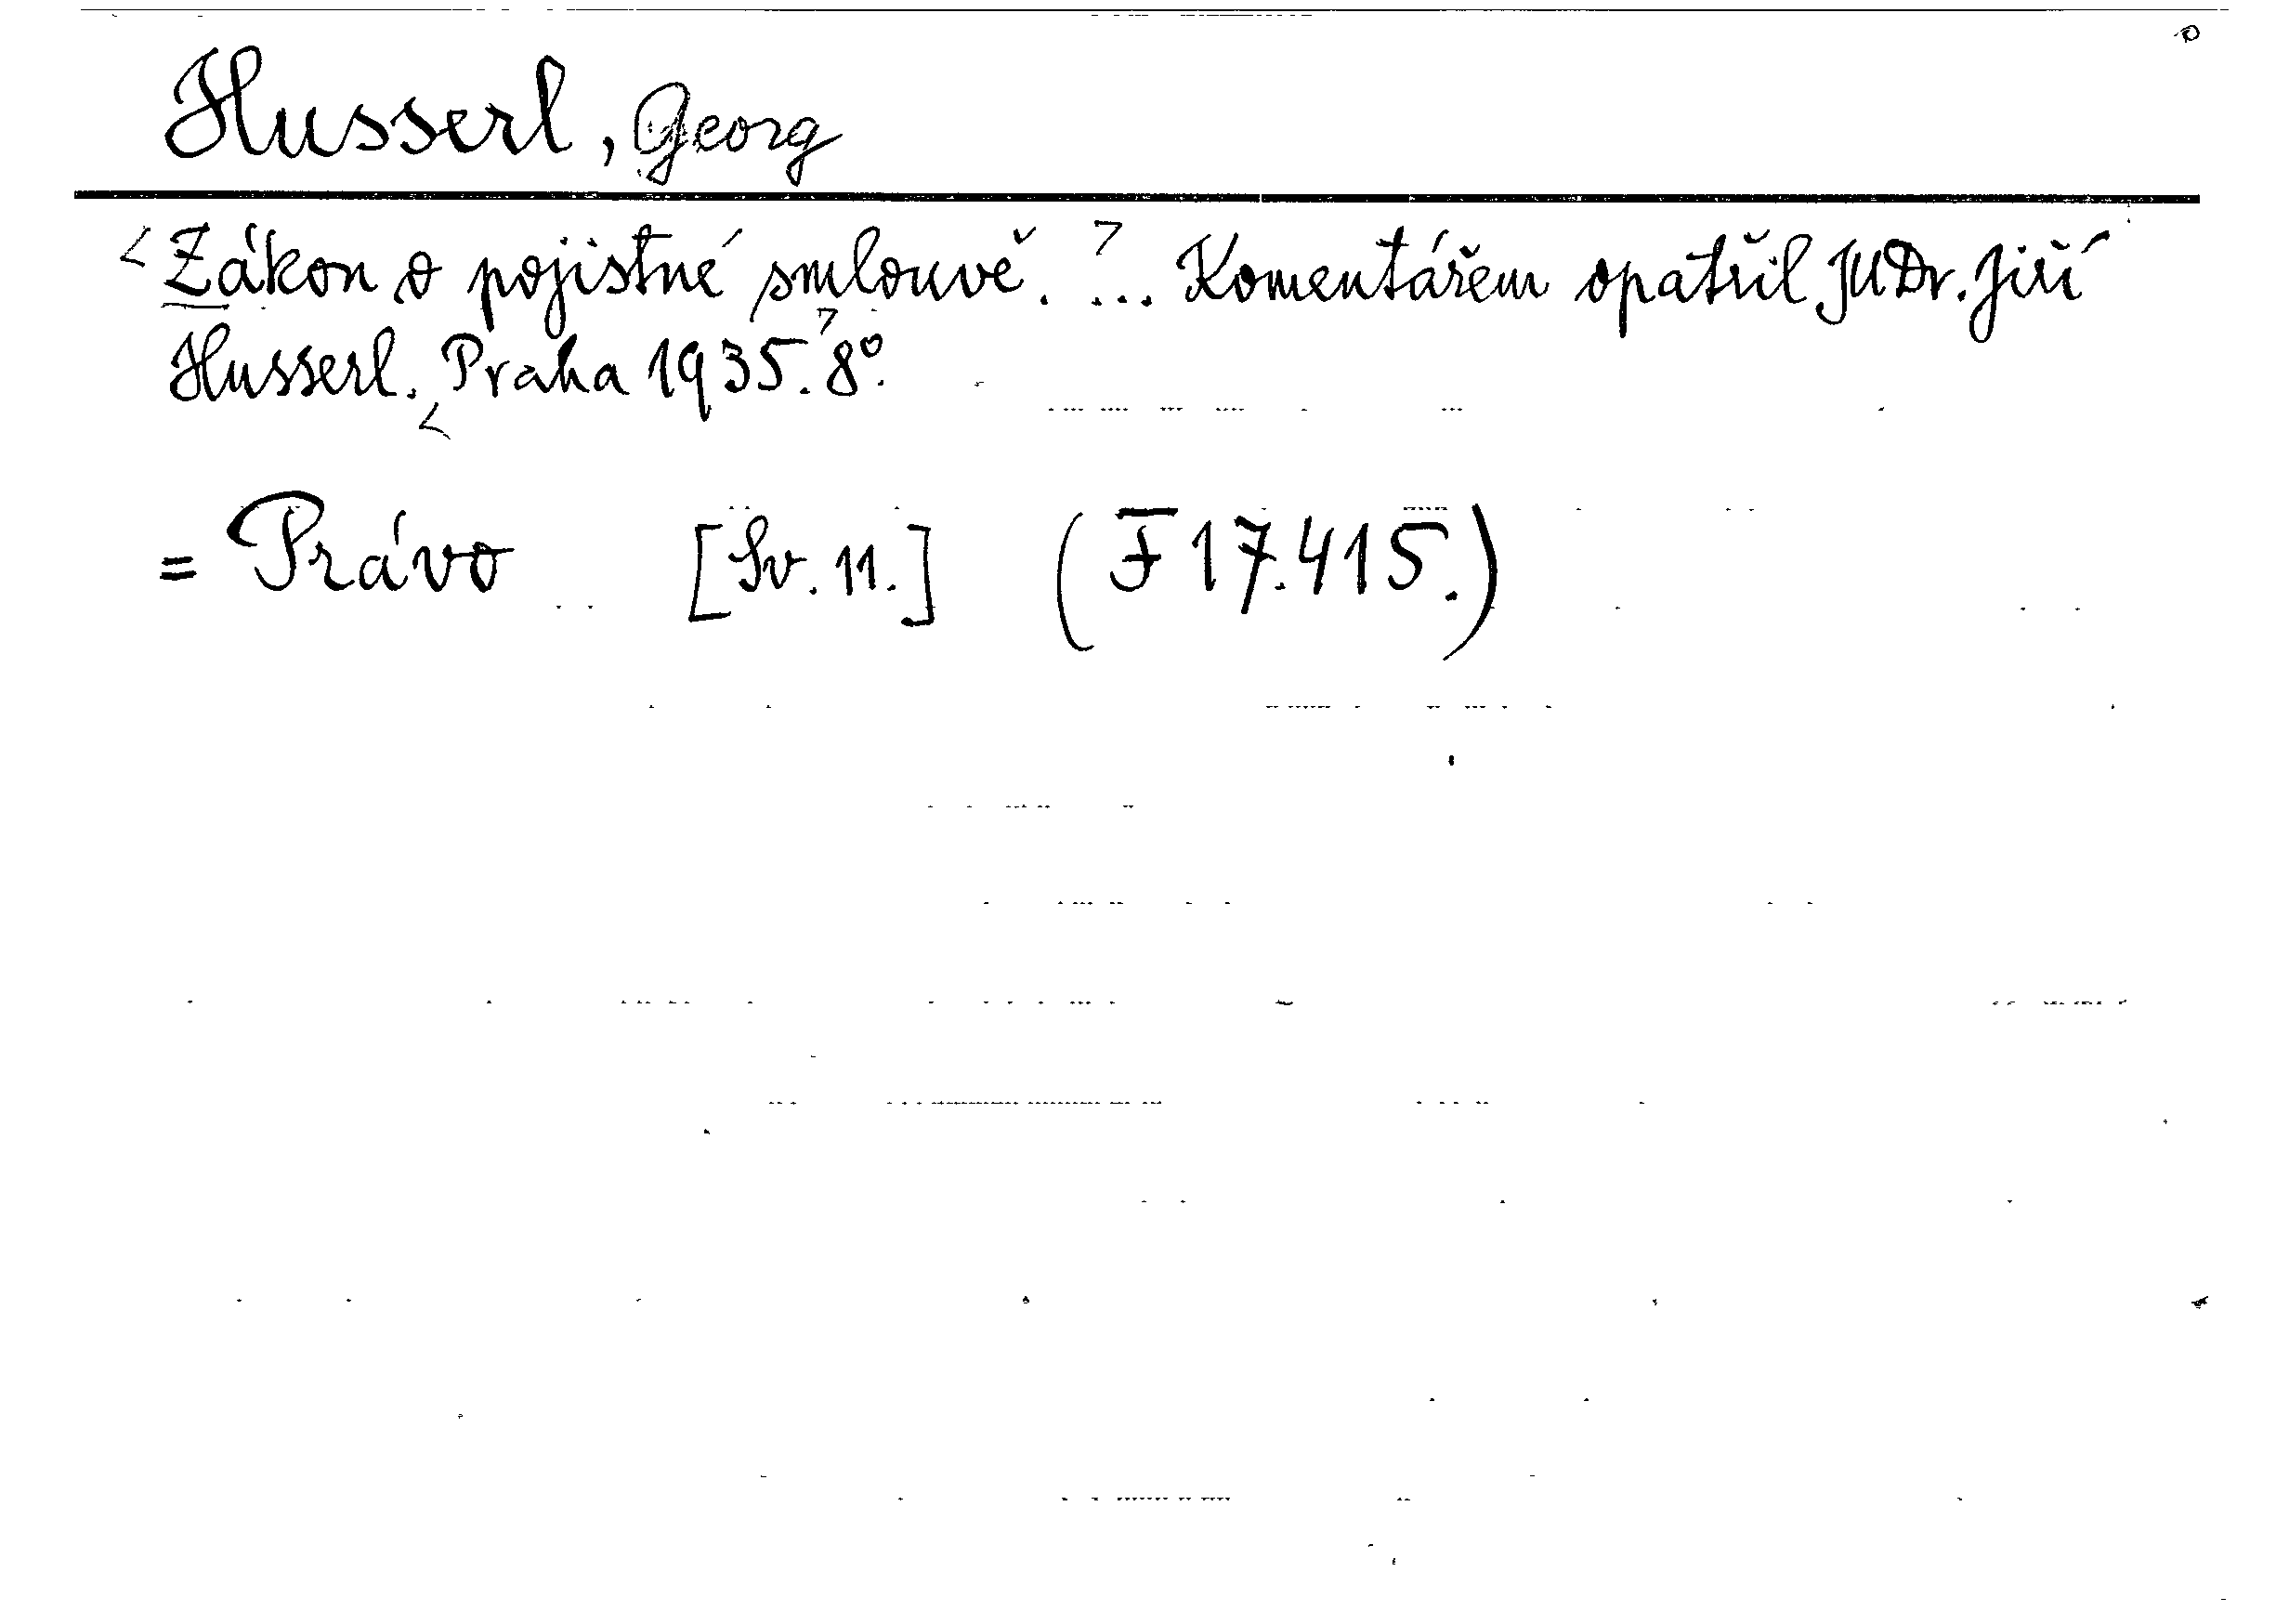 Husserl, Georg
Zákon o pojistné smlouvě. ... Komentářem opatřil JUDr. Jiří
Husserl. Praha 1935. 8°.
= Právo [Sv. 11.] (F 17.415.)